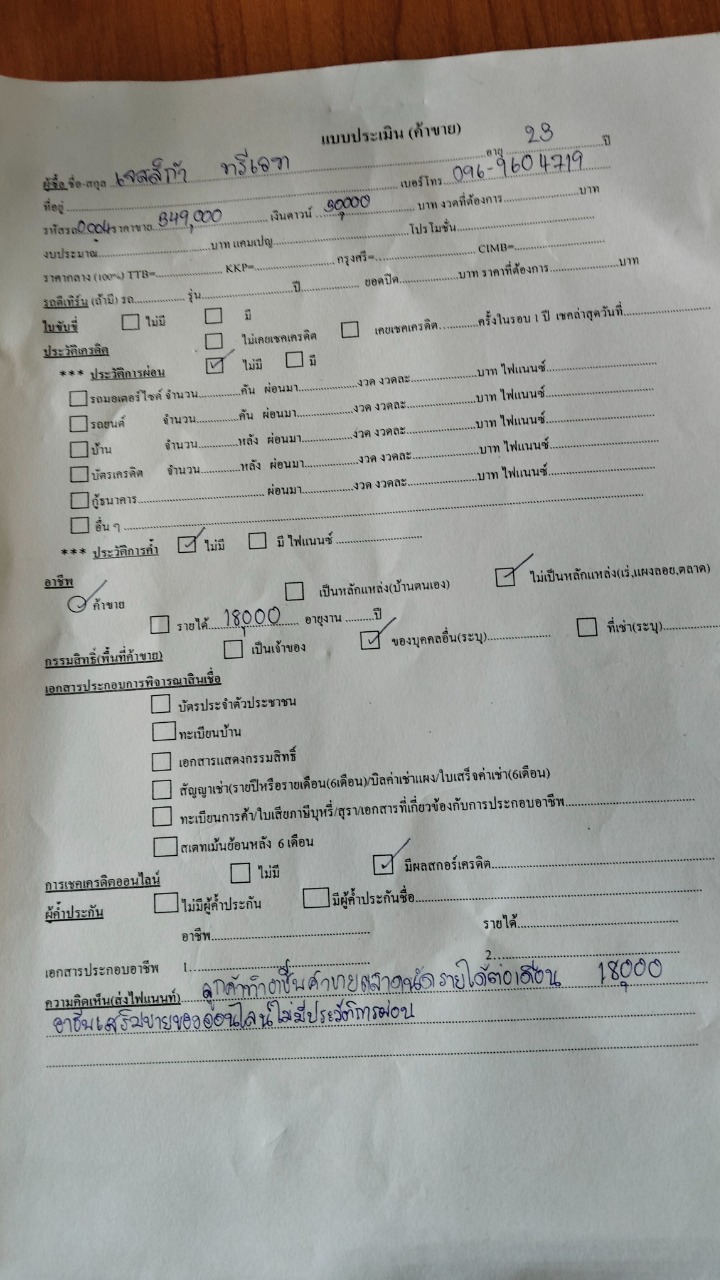 แบบประเมิน (ค้าขาย)
ผู้ซื้อ ชื่อ-สกุล เจสสิก้า ทรีเดช อายุ 23 ปี
ที่อยู่.......... เบอร์โทร. 096-9604719
รหัสรถ 0004 ราคาขาย 349,000 เงินดาวน์ 30,000 บาท งวดที่ต้องการ..........บาท
งบประมาณ..........บาท แคมเปญ..........โปรโมชั่น..........
ราคากลาง (100%) TTB=.......... KKP=.......... กรุงศรี=.......... CIMB=..........
รถตีเทิร์น (ถ้ามี) รถ.......... รุ่น..........ปี.......... ยอดปิด..........บาท ราคาที่ต้องการ..........บาท
ใบขับขี่ ☐ ไม่มี ☐ มี
ประวัติเครดิต ☐ ไม่เคยเชคเครดิต ☐ เคยเชคเครดิต..........ครั้งในรอบ 1 ปี เชคล่าสุดวันที่..........
*** ประวัติการผ่อน ☑ ไม่มี ☐ มี
☐ รถมอเตอร์ไซค์ จำนวน..........คัน ผ่อนมา..........งวด งวดละ..........บาท ไฟแนนซ์..........
☐ รถยนต์ จำนวน..........คัน ผ่อนมา..........งวด งวดละ..........บาท ไฟแนนซ์..........
☐ บ้าน จำนวน..........หลัง ผ่อนมา..........งวด งวดละ..........บาท ไฟแนนซ์..........
☐ บัตรเครดิต จำนวน..........หลัง ผ่อนมา..........งวด งวดละ..........บาท ไฟแนนซ์..........
☐ กู้ธนาคาร..........ผ่อนมา..........งวด งวดละ..........บาท ไฟแนนซ์..........
☐ อื่น ๆ..........
*** ประวัติการค้ำ ☑ ไม่มี ☐ มี ไฟแนนซ์..........
อาชีพ ☐ เป็นหลักแหล่ง(บ้านตนเอง) ☑ ไม่เป็นหลักแหล่ง(เร่,แผงลอย,ตลาด)
☑ ค้าขาย
☐ รายได้ 18,000 อายุงาน ..........ปี
กรรมสิทธิ์(พื้นที่ค้าขาย) ☐ เป็นเจ้าของ ☑ ของบุคคลอื่น(ระบุ).......... ☐ ที่เช่า(ระบุ)..........
เอกสารประกอบการพิจารณาสินเชื่อ
☐ บัตรประจำตัวประชาชน
☐ ทะเบียนบ้าน
☐ เอกสารแสดงกรรมสิทธิ์
☐ สัญญาเช่า(รายปีหรือรายเดือน(6เดือน)/บิลค่าเช่าแผง/ใบเสร็จค่าเช่า(6เดือน)
☐ ทะเบียนการค้า/ใบเสียภาษีบุหรี่/สุรา/เอกสารที่เกี่ยวข้องกับการประกอบอาชีพ..........
☐ สเตทเม้นย้อนหลัง 6 เดือน
การเชคเครดิตออนไลน์ ☐ ไม่มี ☑ มีผลสกอร์เครดิต..........
ผู้ค้ำประกัน ☐ ไม่มีผู้ค้ำประกัน ☐ มีผู้ค้ำประกันชื่อ..........
อาชีพ.......... รายได้..........
เอกสารประกอบอาชีพ 1........... 2...........
ความคิดเห็น(ส่งไฟแนนท์) ลูกค้าทำอาชีพค้าขายตลาดนัด รายได้ต่อเดือน 18,000
อาชีพเสริมขายของออนไลน์ไม่มีประวัติการผ่อน